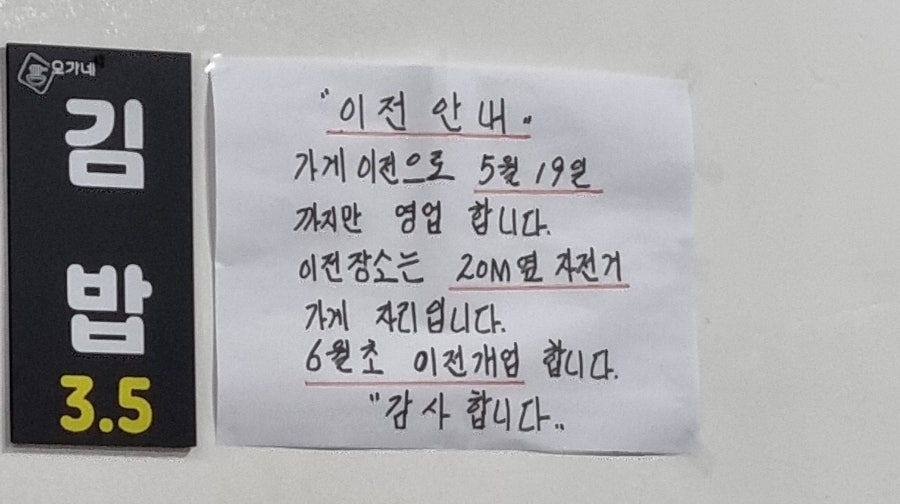 요가네
김
밥
3.5
"이전 안내"
가게 이전으로 5월 19일
까지만 영업 합니다.
이전장소는 20M옆 자전거
가게 자리입니다.
6월초 이전개업 합니다.
"감사합니다"